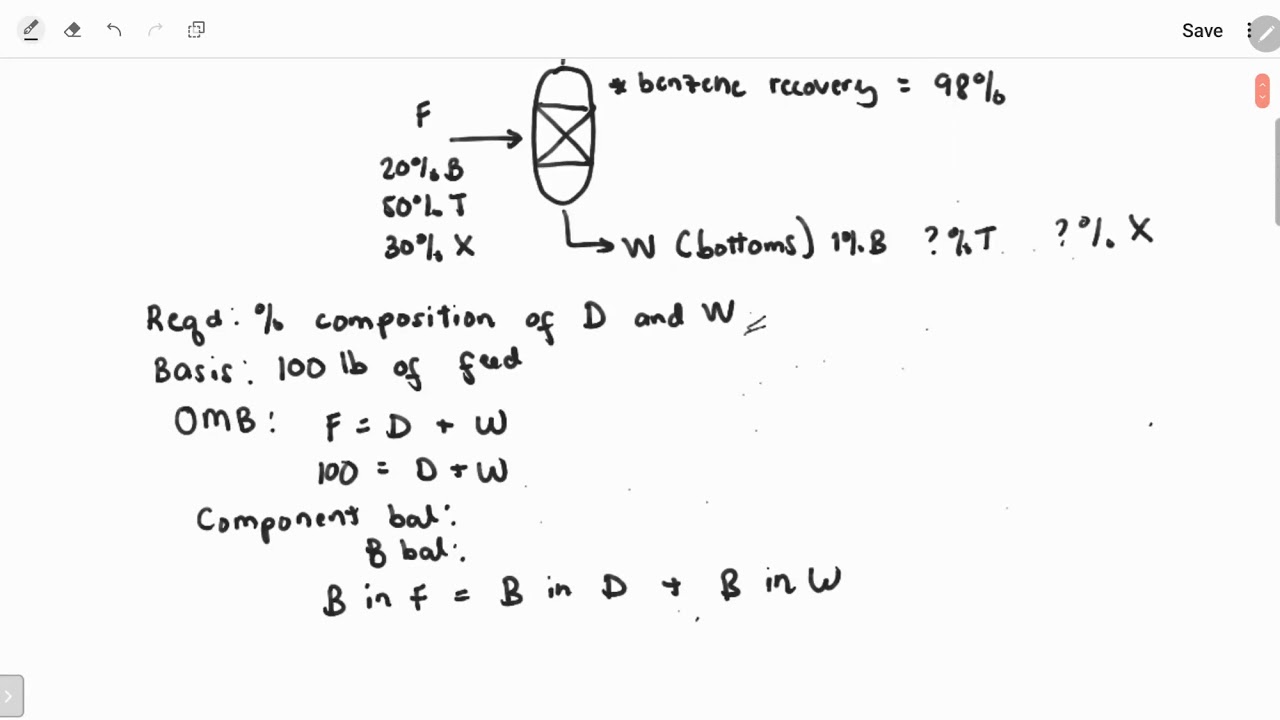 Save
* benzene recovery = 98%
F
20% B
50% T
30% X
W (bottoms) 1% B ?%T ?% X
Reqd: % composition of D and W
Basis: 100 lb of feed
OMB: F = D + W
100 = D + W
Component bal:
B bal:
B in F = B in D + B in W